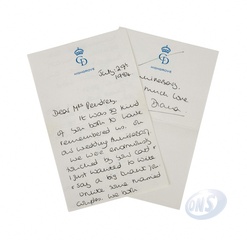 July 29th
1986
Dear Mrs Pendrey,
It was so kind
of you both to have
remembered us on
our wedding Anniversary
we were enormously
touched by your card +
I just wanted to write
+ say a big thank you
unlike some married
couples we both
Anniversary.
much love
Diana
DNS